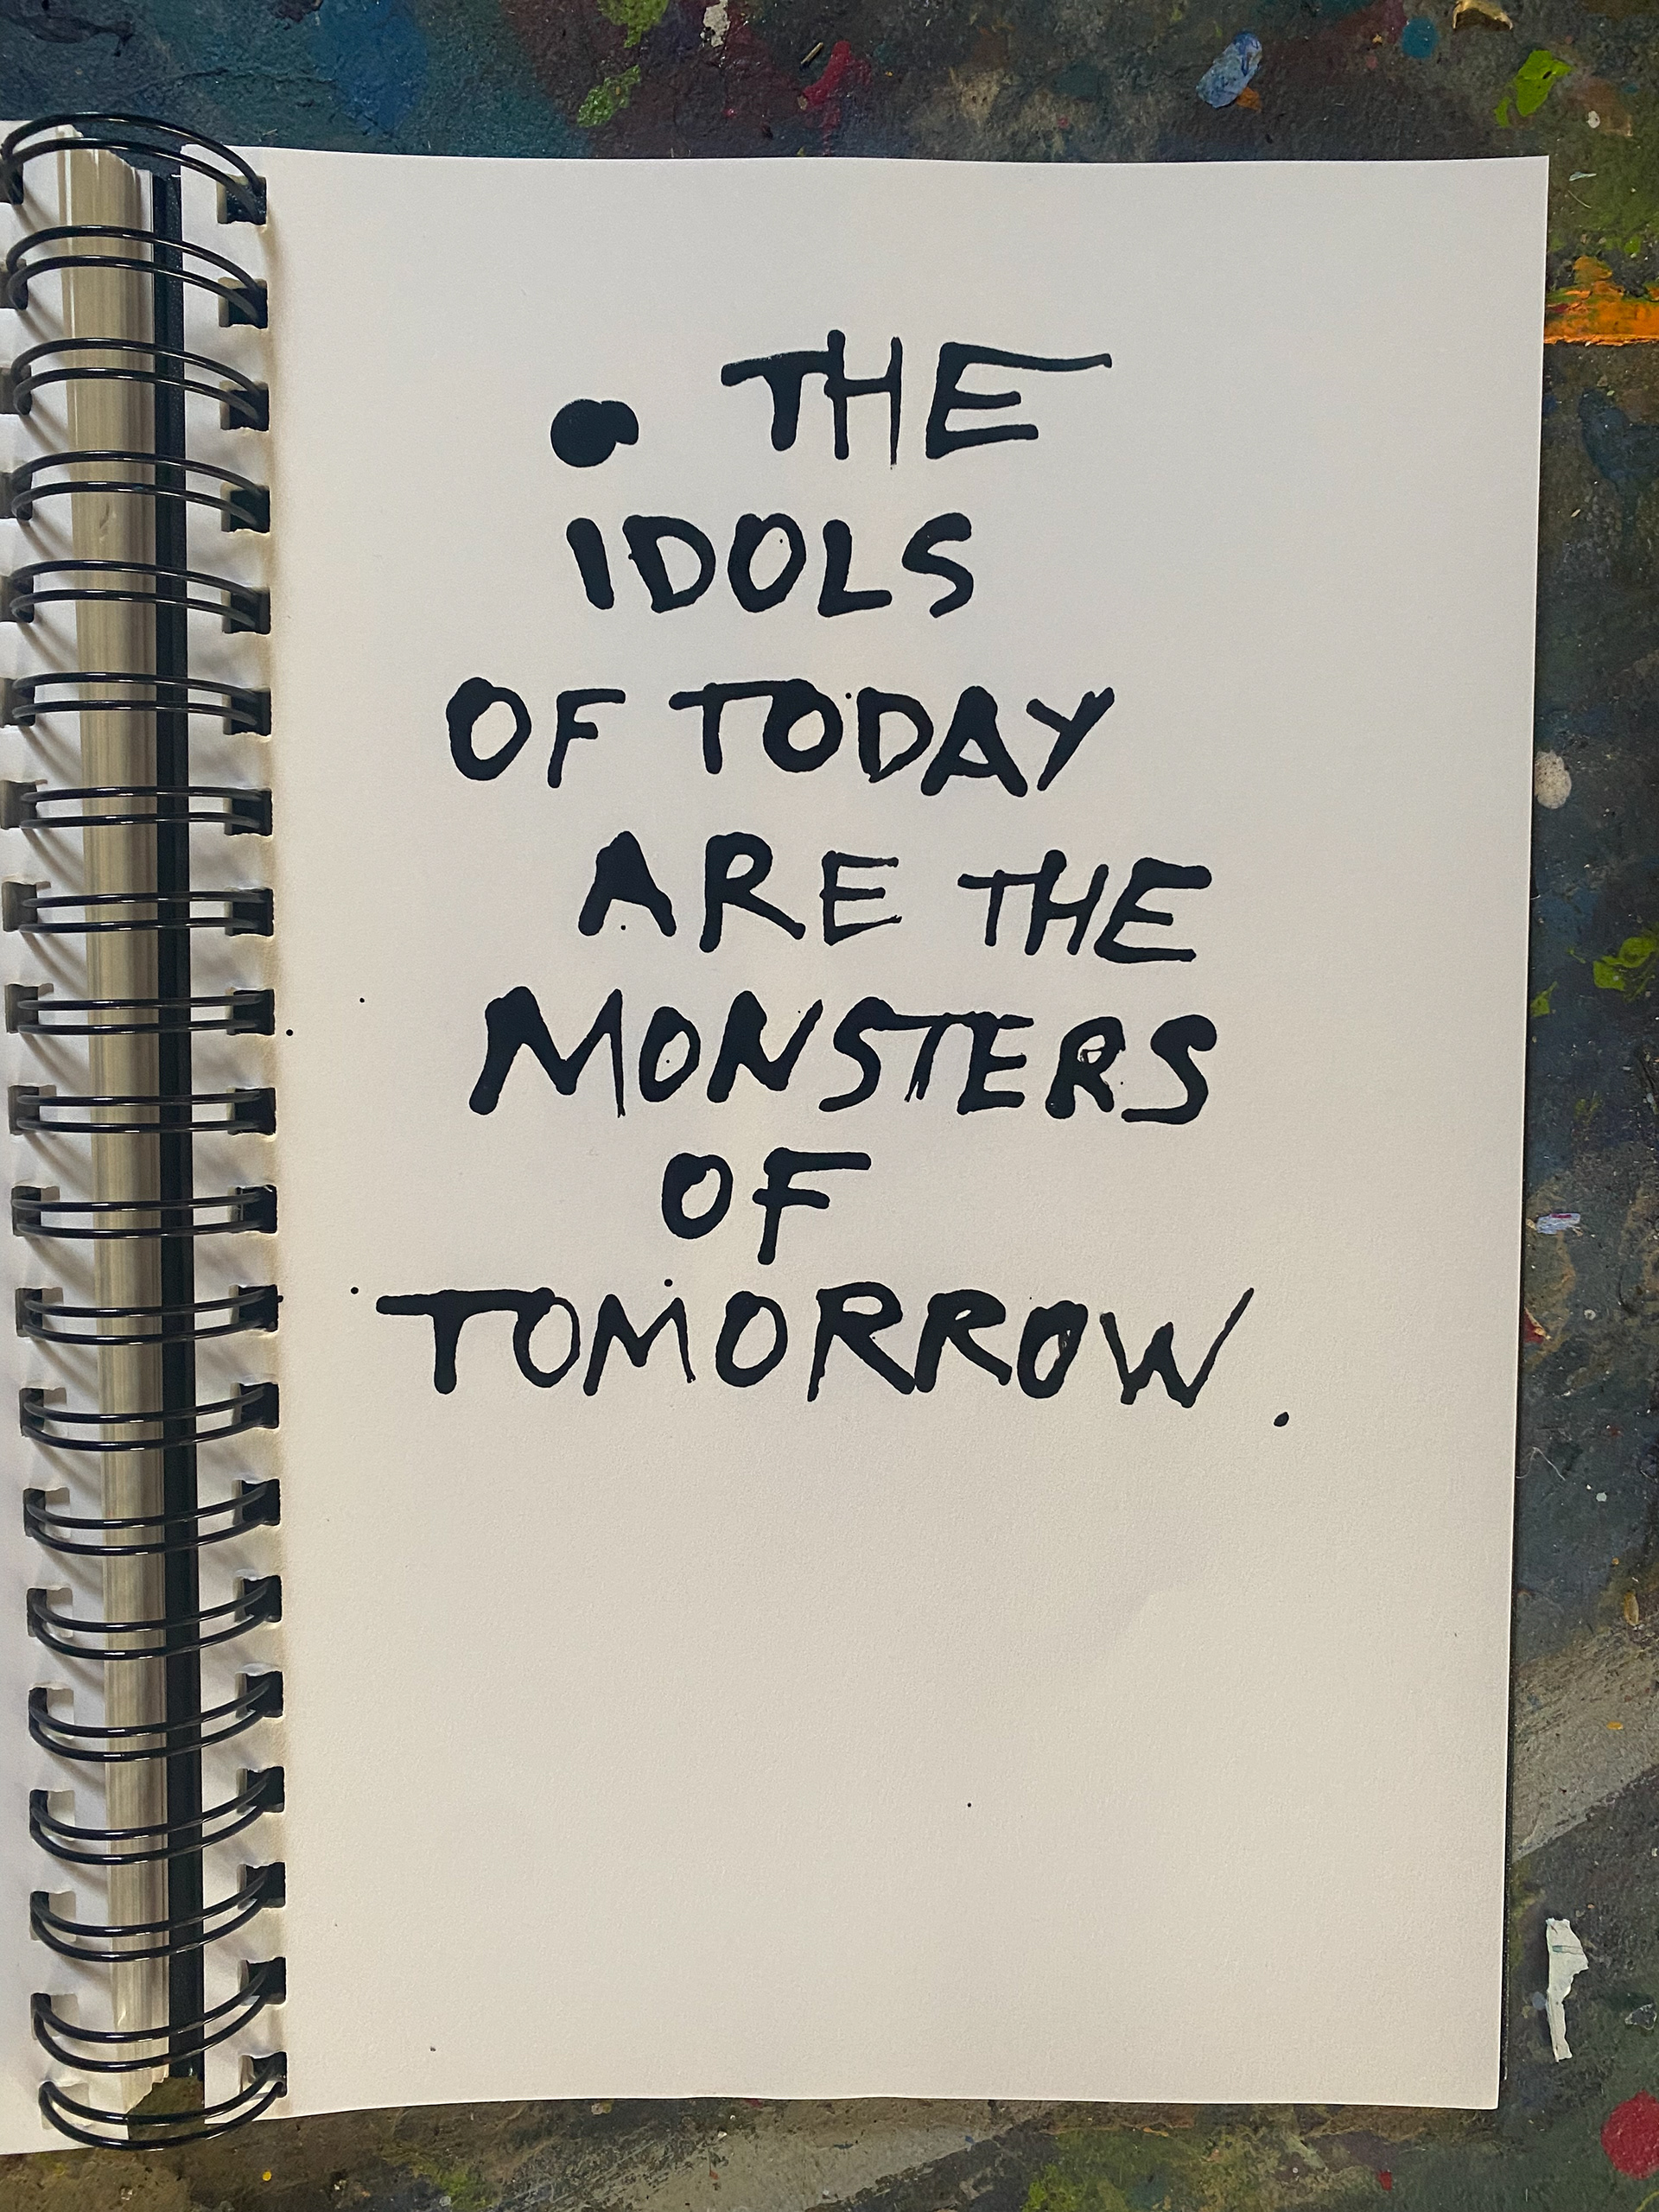 • THE
IDOLS
OF TODAY
ARE THE
MONSTERS
OF
TOMORROW.